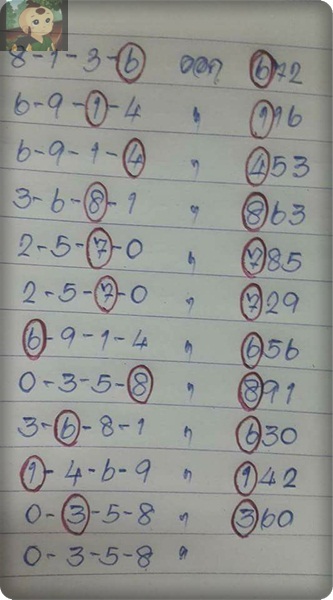 8-1-3-6 ออก 672
6-9-1-4 " 116
6-9-1-4 " 453
3-6-8-1 " 863
2-5-7-0 " 785
2-5-7-0 " 729
6-9-1-4 " 656
0-3-5-8 " 891
3-6-8-1 " 630
1-4-6-9 " 142
0-3-5-8 " 360
0-3-5-8 "